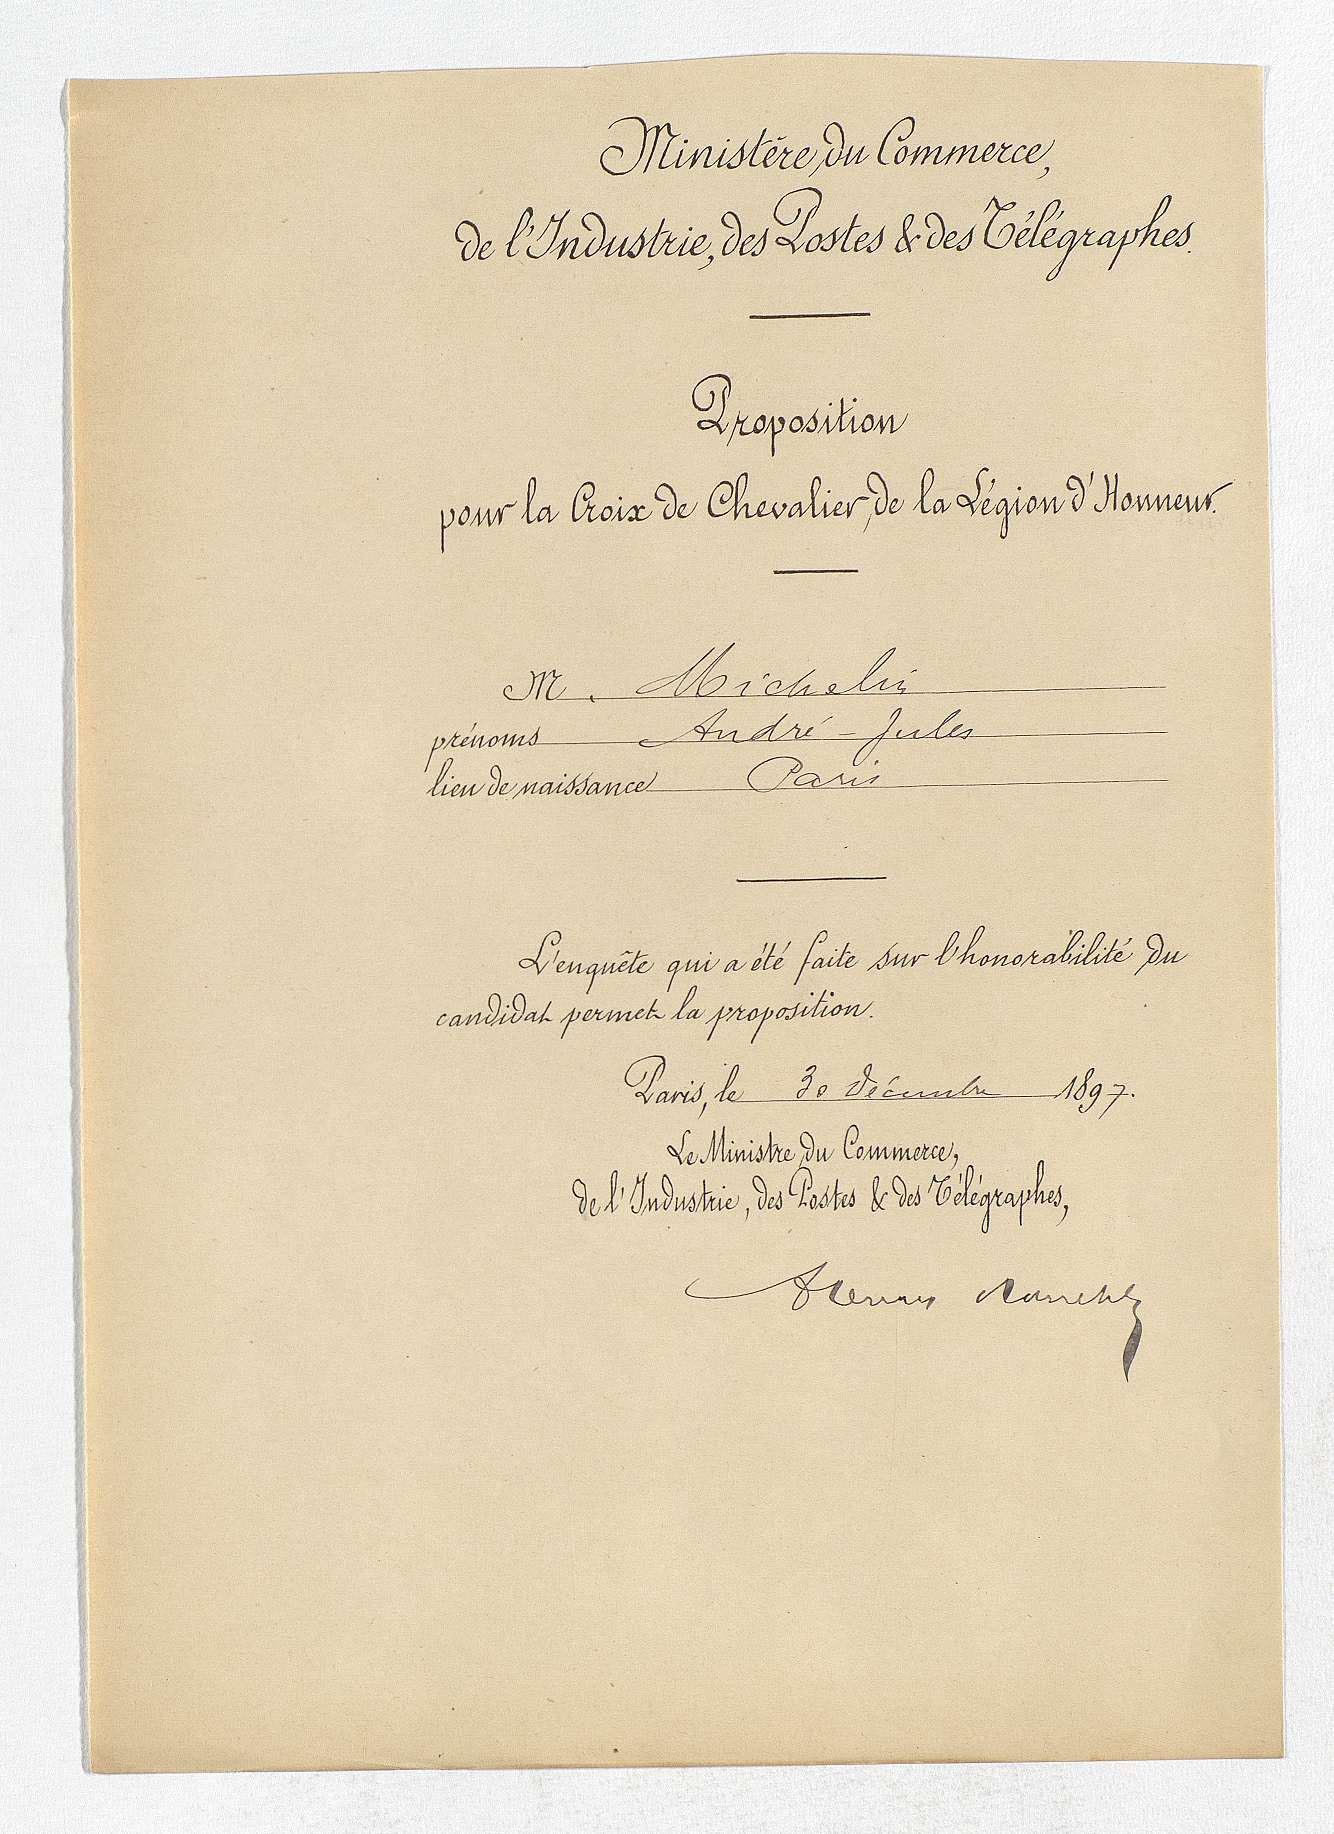 Ministère du Commerce,
de l'Industrie, des Postes & des Télégraphes.
Proposition
pour la Croix de Chevalier de la Légion d'Honneur.
M. Michelin
prénoms André-Jules
lieu de naissance Paris
L'enquête qui a été faite sur l'honorabilité du
candidat permet la proposition.
Paris, le 30 décembre 1897.
Le Ministre du Commerce,
de l'Industrie, des Postes & des Télégraphes,
Henry Boucher